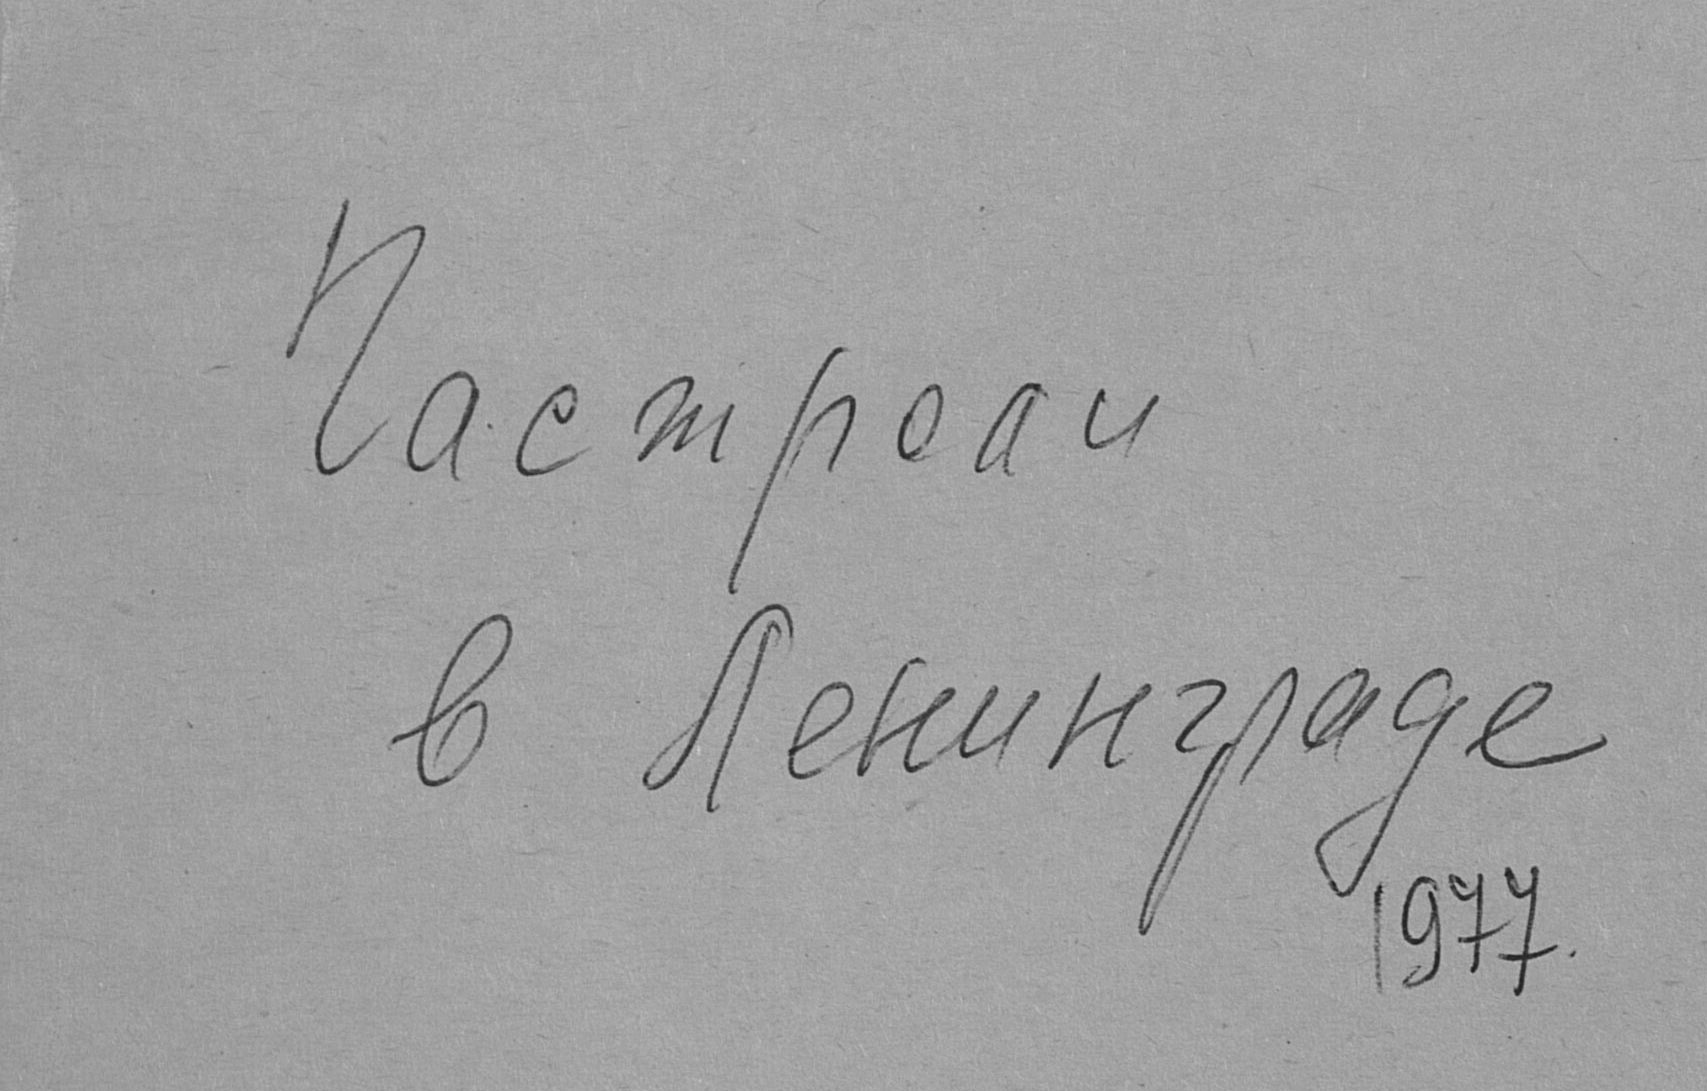 Гастроли
в Ленинграде
1977.